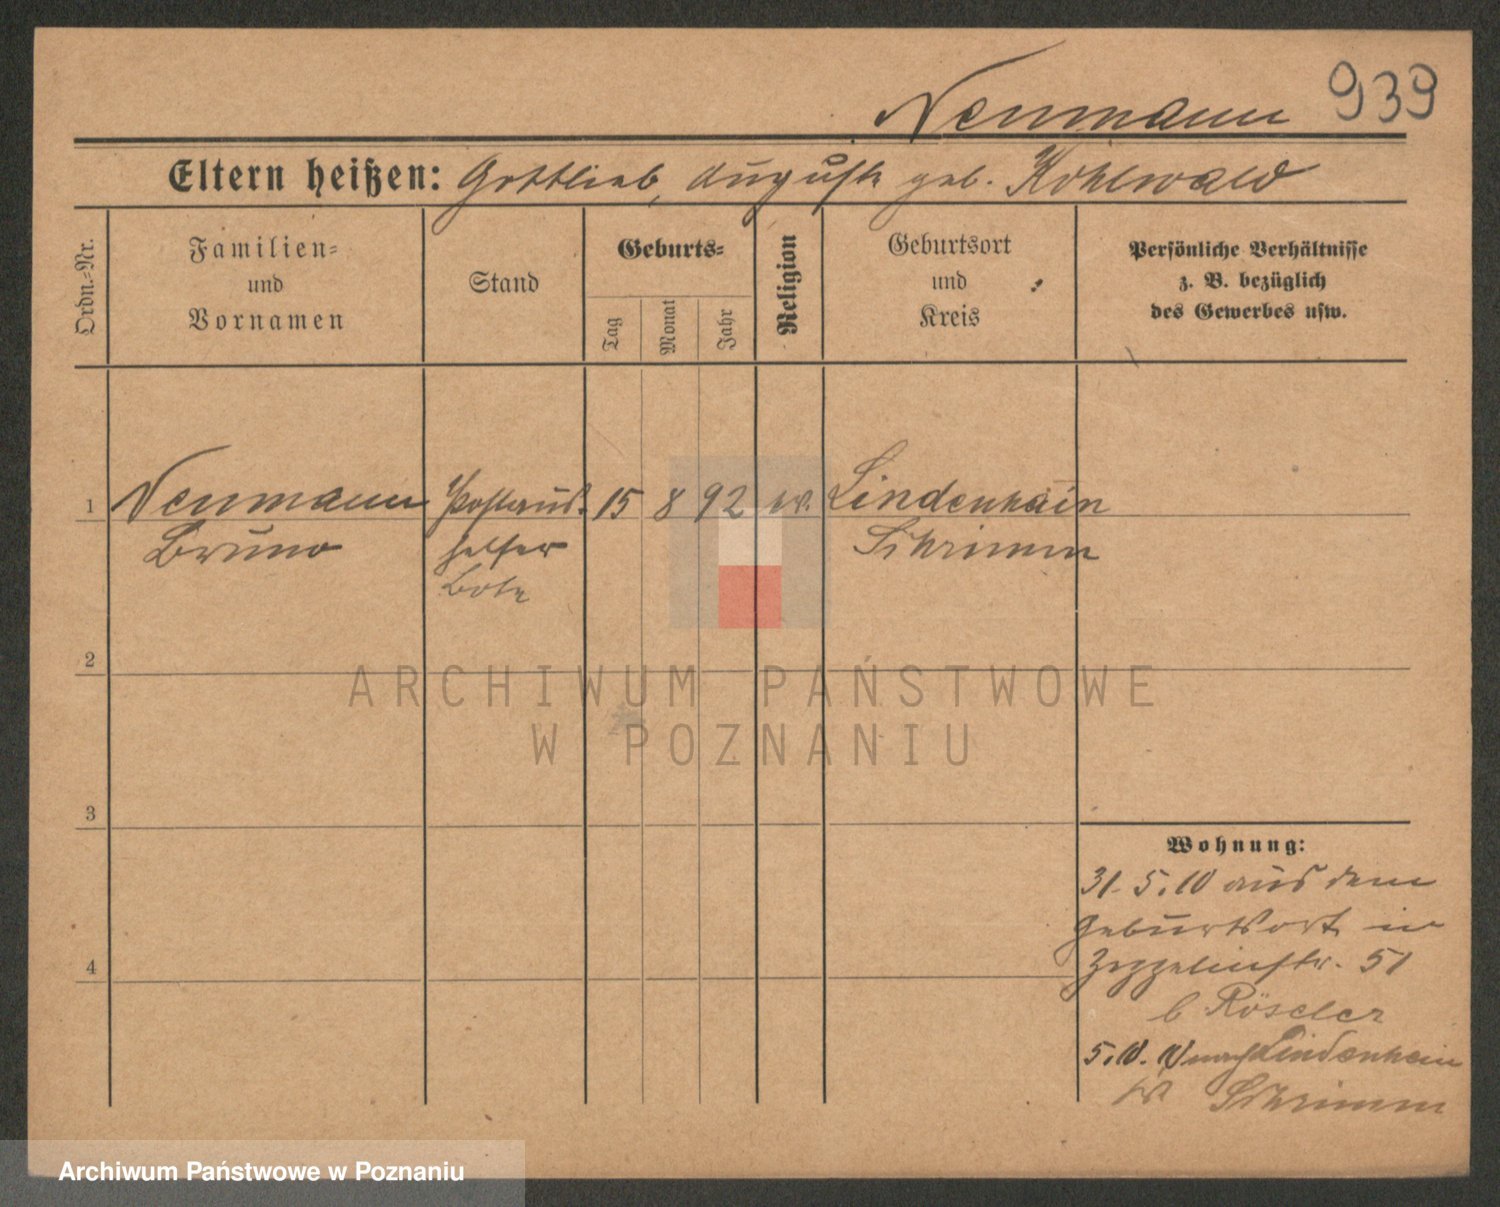 Neumann 939
Eltern heißen: Gottlieb, Auguste geb. Kohlwald
Ordn.-Nr.
Familien-
und
Vornamen
Stand
Geburts-
Tag
Monat
Jahr
Religion
Geburtsort
und
Kreis
Persönliche Verhältnisse
z. B. bezüglich
des Gewerbes usw.
1 Neumann Postaus- 15 8 92 ev. Lindenhain
Bruno helfer Schrimm
Bote
2
ARCHIWUM PAŃSTWOWE
W POZNANIU
3
Wohnung:
31.5.10 aus dem
Geburtsort in
4 Zeppelinstr. 51
b Röseler
5.10.10 nach Lindenhain
Schrimm
Archiwum Państwowe w Poznaniu